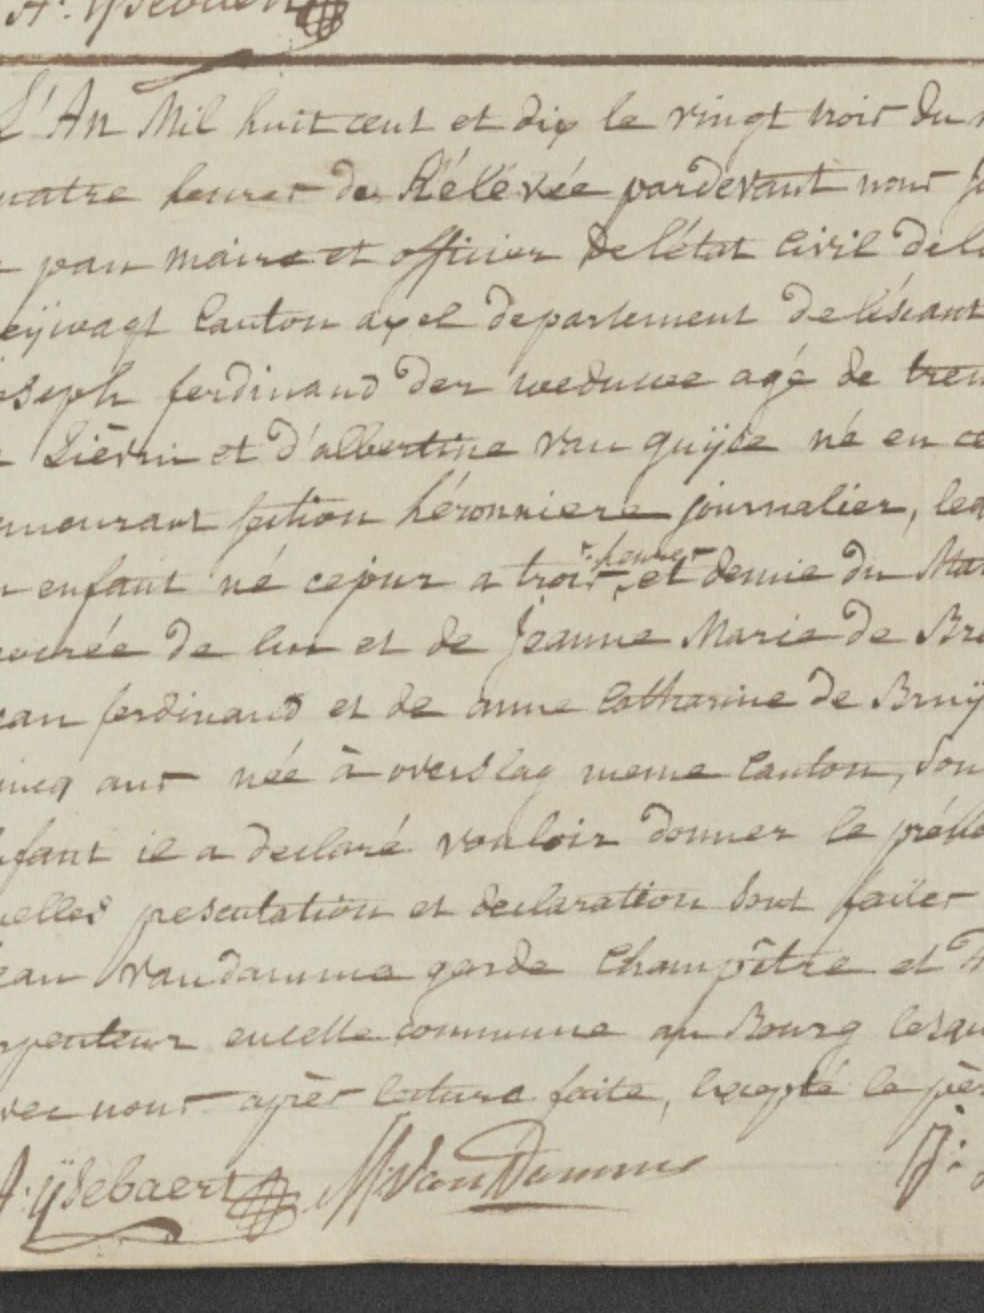 A. ÿsebaert
L'An Mil huit cent et dix le vingt trois du
uatre heures de Rélévée pardevant nous J
pau maire et officier de l'état Civil dela
eÿwagt Canton axel departement de l'éscaut
oseph ferdinand der weduwe agé de tren
Liévin et d'albertine van guijse né en ce
emeurant section héronniere journalier, leq
n enfant né cejour a trois heures et demie du Mat
ocréé de lui et de Jeanne Marie de Bru
ean ferdinand et de anne Catharine de Bruÿ
incq ans née à overslag meme Canton, don
nfant il a declaré vouloir donner le préno
uelles presentation et declaration sont faites
ean vandamme garde Champêtre et
rpenteur encelle commune au Bourg lesqu
vec nous après lecture faite, Excepté le pèr
A. ÿsebaert J. Van Damme J: